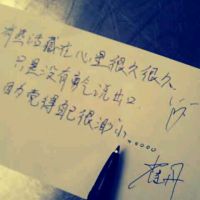 有些话藏在心里很久很久
只是没有勇气说出口
因为觉得自己很渺小......